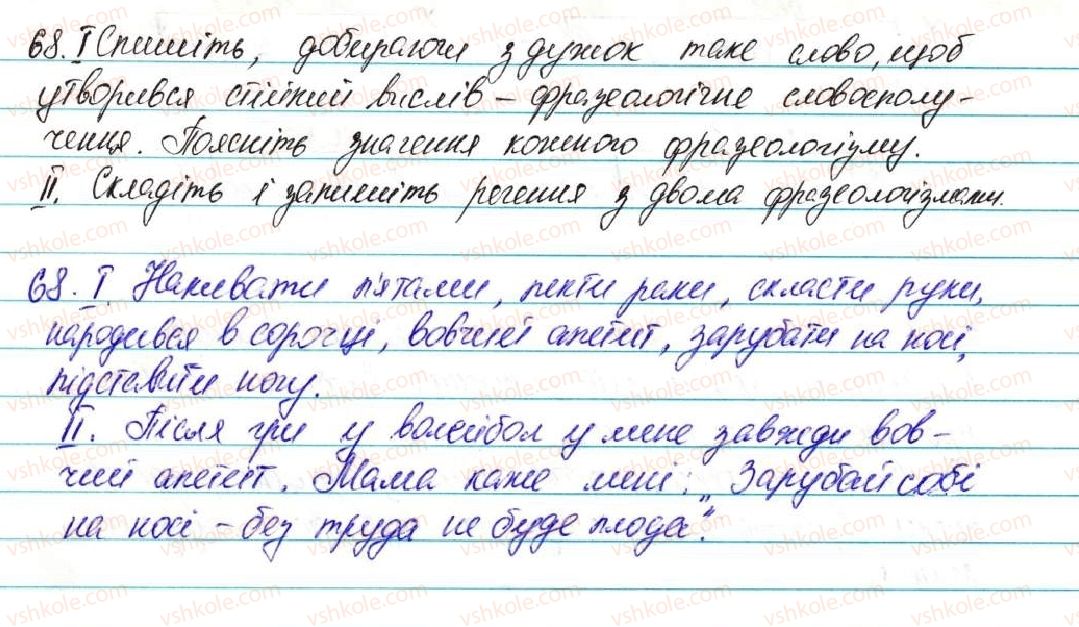 68. I Спишіть, добираючи з дужок таке слово, щоб
утворився стійкий вислів – фразеологічне словосполу-
чення. Поясніть значення кожного фразеологізму.
II. Складіть і запишіть речення з двома фразеологізмами.
68. I Накивати п'ятами, пекти раки, скласти руки,
народився в сорочці, вовчий апетит, зарубати на носі,
підставити ногу.
II. Після гри у волейбол у мене завжди вов-
чий апетит. Мама каже мені: „Зарубай собі
на носі – без труда не буде плода".